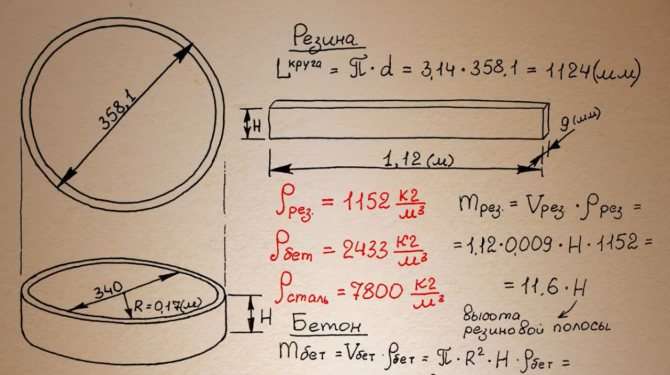 Резина
Lкруга = π · d = 3,14 · 358,1 = 1124(мм)
358,1
H
9(мм)
1,12(м)
ρрез. = 1152 кг/м³
mрез. = Vрез · ρрез =
ρбет = 2433 кг/м³
= 1,12 · 0,009 · H · 1152 =
340
R=0,17(м)
H
ρсталь = 7800 кг/м³
= 11.6 · H
высота
резиновой полосы
Бетон
mбет = Vбет · ρбет = π · R² · H · ρбет =